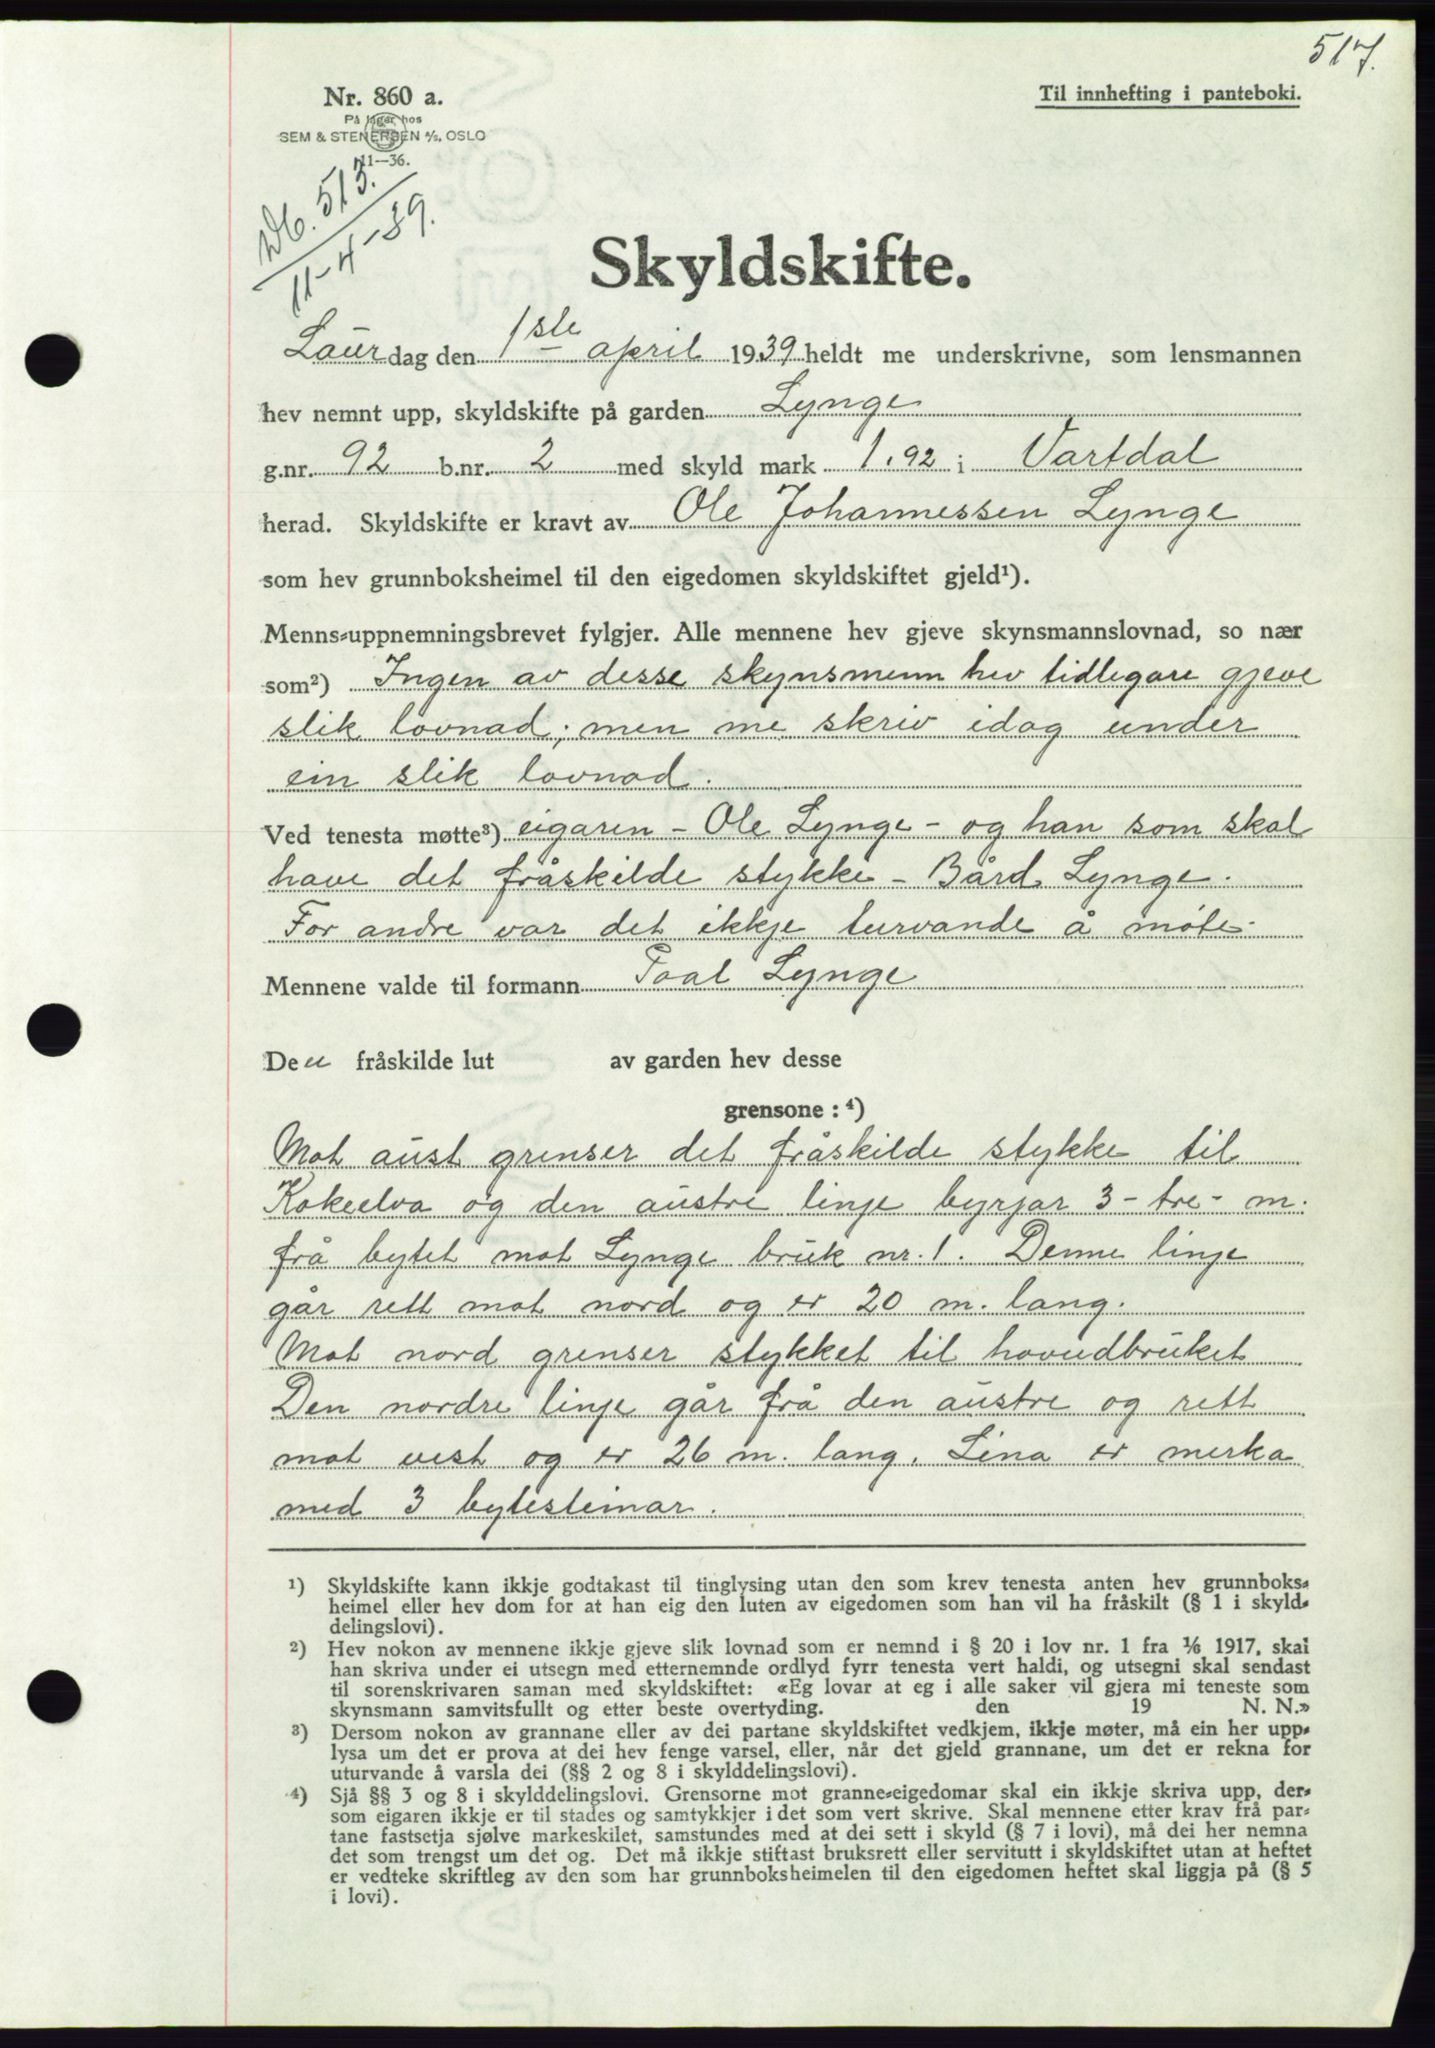 517.
Nr. 860 a.
Til innhefting i panteboki.
På lager hos
SEM & STENERSEN A/S, OSLO
11—36.
Db. 513.
11-4-39.
Skyldskifte.
Laurdag den 1ste april 1939 heldt me underskrivne, som lensmannen
hev nemnt upp, skyldskifte på garden Lynge
g.nr. 92 b.nr. 2 med skyld mark 1.92 i Vartdal
herad. Skyldskifte er kravt av Ole Johannessen Lynge
som hev grunnboksheimel til den eigedomen skyldskiftet gjeld¹).
Menns-uppnemningsbrevet fylgjer. Alle mennene hev gjeve skynsmannslovnad, so nær
som²) Ingen av desse skynsmenn hev tidlegare gjeve
slik lovnad; men me skriv idag under
ein slik lovnad.
Ved tenesta møtte³) eigaren - Ole Lynge - og han som skal
have det fråskilde stykke - Bård Lynge.
For andre var det ikkje turvande å møte.
Mennene valde til formann Paal Lynge
Den fråskilde lut av garden hev desse
grensone : ⁴)
Mot aust grenser det fråskilde stykke til
Kokeelva og den austre linje byrjar 3 - tre - m.
frå bytet mot Lynge bruk nr. 1. Denne linje
går rett mot nord og er 20 m. lang.
Mot nord grenser stykket til hovudbruket
Den nordre linje går frå den austre og rett
mot vest og er 26 m. lang. Lina er merka
med 3 bytesteinar.
¹) Skyldskifte kann ikkje godtakast til tinglysing utan den som krev tenesta anten hev grunnboks-
heimel eller hev dom for at han eig den luten av eigedomen som han vil ha fråskilt (§ 1 i skyld-
delingslovi).
²) Hev nokon av mennene ikkje gjeve slik lovnad som er nemnd i § 20 i lov nr. 1 fra 1/6 1917, skal
han skriva under ei utsegn med etternemnde ordlyd fyrr tenesta vert haldi, og utsegni skal sendast
til sorenskrivaren saman med skyldskiftet: «Eg lovar at eg i alle saker vil gjera mi teneste som
skynsmann samvitsfullt og etter beste overtyding. den 19 N. N.»
³) Dersom nokon av grannane eller av dei partane skyldskiftet vedkjem, ikkje møter, må ein her upp-
lysa um det er prova at dei hev fenge varsel, eller, når det gjeld grannane, um det er rekna for
uturvande å varsla dei (§§ 2 og 8 i skylddelingslovi).
⁴) Sjå §§ 3 og 8 i skylddelingslovi. Grensorne mot granne-eigedomar skal ein ikkje skriva upp, der-
som eigaren ikkje er til stades og samtykkjer i det som vert skrive. Skal mennene etter krav frå par-
tane fastsetja sjølve markeskilet, samstundes med at dei sett i skyld (§ 7 i lovi), må dei her nemna
det som trengst um det og. Det må ikkje stiftast bruksrett eller servitutt i skyldskiftet utan at heftet
er vedteke skriftleg av den som har grunnboksheimelen til den eigedomen heftet skal liggja på (§ 5
i lovi).